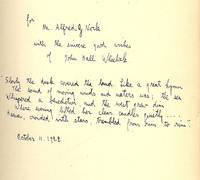 for
Mr. Alfred J Noch
with the sincere good wishes
of John Hall Wheelock
"Slowly the dusk covered the land. Like a great hymn
The sound of moving winds and waters was; the sea
Whispered a benediction and the west grew dim
Where evening lifted her clear candles quietly....
Heaven, crowded with stars, trembled from rim to rim".
October 11. 1922